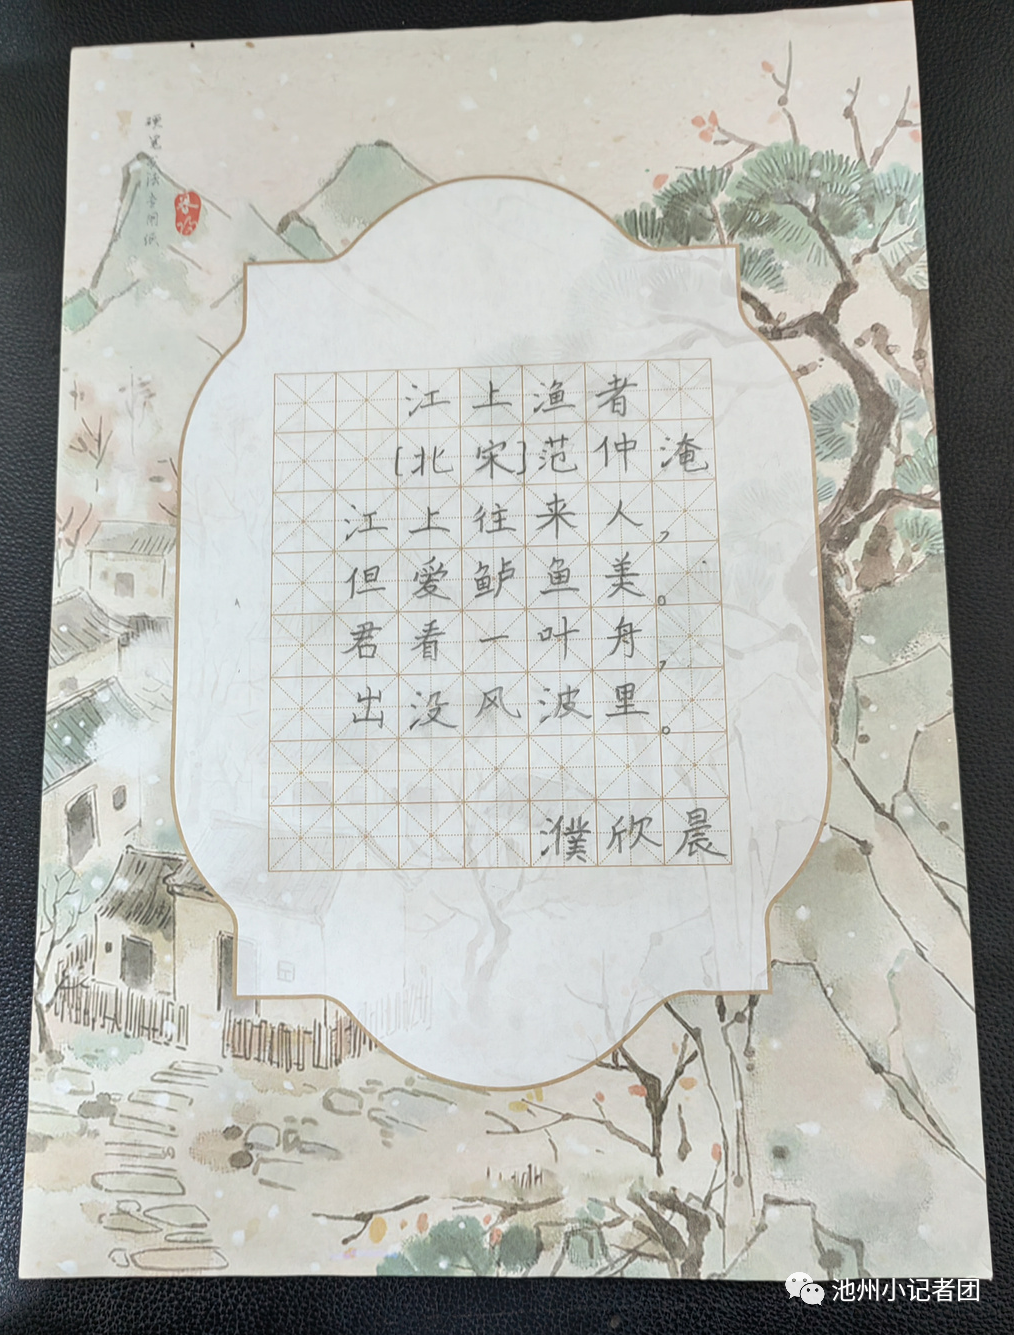 硬笔书法专用纸
江上渔者
[北宋]范仲淹
江上往来人，
但爱鲈鱼美。
君看一叶舟，
出没风波里。
濮欣晨
池州小记者团